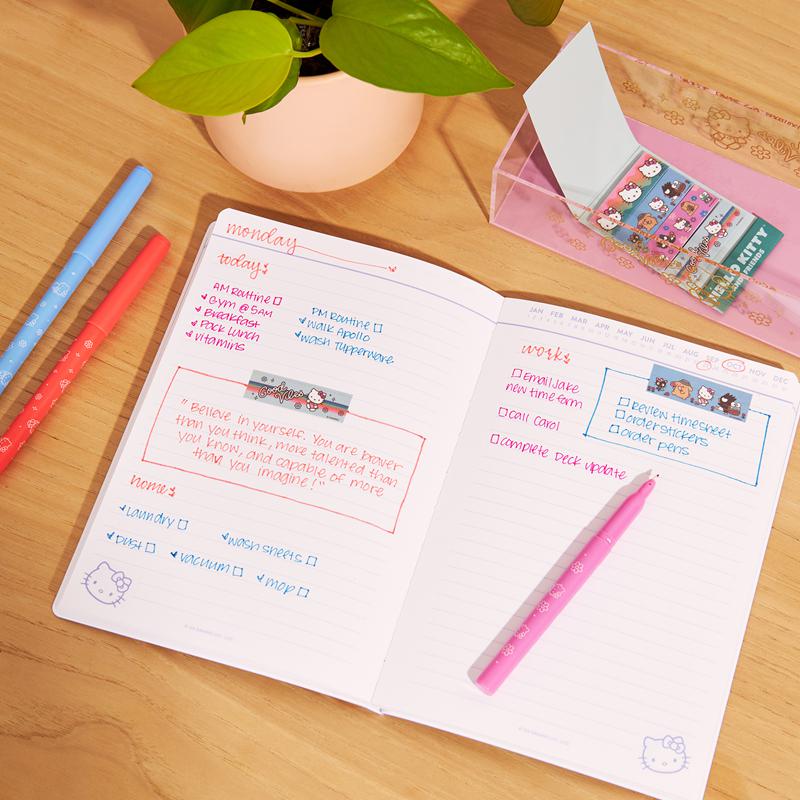 monday
today
AM Routine
Gym @ 5AM
Breakfast
Pack Lunch
Vitamins
PM Routine
Walk Apollo
Wash Tupperware
Good Vibes
"Believe in yourself. You are braver
than you think, more talented than
you know, and capable of more
than you imagine!"
home
Laundry
Dust
Vacuum
Wash sheets
Mop
JAN FEB MAR APR MAY JUN JUL AUG SEP OCT NOV DEC
work
Email Jake
new time form
Call Carol
Complete Deck update
Review timesheet
order stickers
order pens
HELLO KITTY
AND FRIENDS